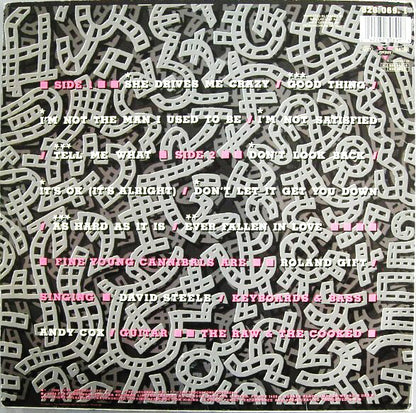 828 069.1
■ SIDE 1 ■ ■ *SHE DRIVES ME CRAZY / ***GOOD THING /
I'M NOT THE MAN I USED TO BE / *I'M NOT SATISFIED
/ ***TELL ME WHAT ■ SIDE 2 ■ *DON'T LOOK BACK /
IT'S OK (IT'S ALRIGHT) / *DON'T LET IT GET YOU DOWN
/ ***AS HARD AS IT IS / **EVER FALLEN IN LOVE ■ ■ ■ ■
■ FINE YOUNG CANNIBALS ARE ■ ■ ROLAND GIFT /
SINGING ■ DAVID STEELE / KEYBOARDS & BASS ■
ANDY COX / GUITAR ■ ■ THE RAW & THE COOKED ■